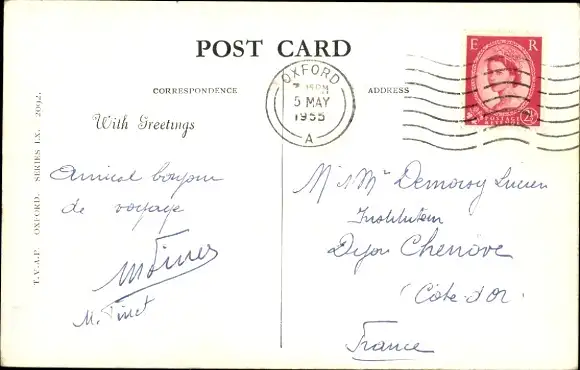 POST CARD
CORRESPONDENCE
ADDRESS
With Greetings
T.V.A.P. OXFORD. SERIES LX. 2092.
OXFORD
5 MAY
1955
A
E R
POSTAGE
REVENUE
2½
Amical bonjour
de voyage
M. Tinet
M & Mme Demorsy Lucien
Instituteur
Dijon Chenôve
(Côte-d'Or)
France